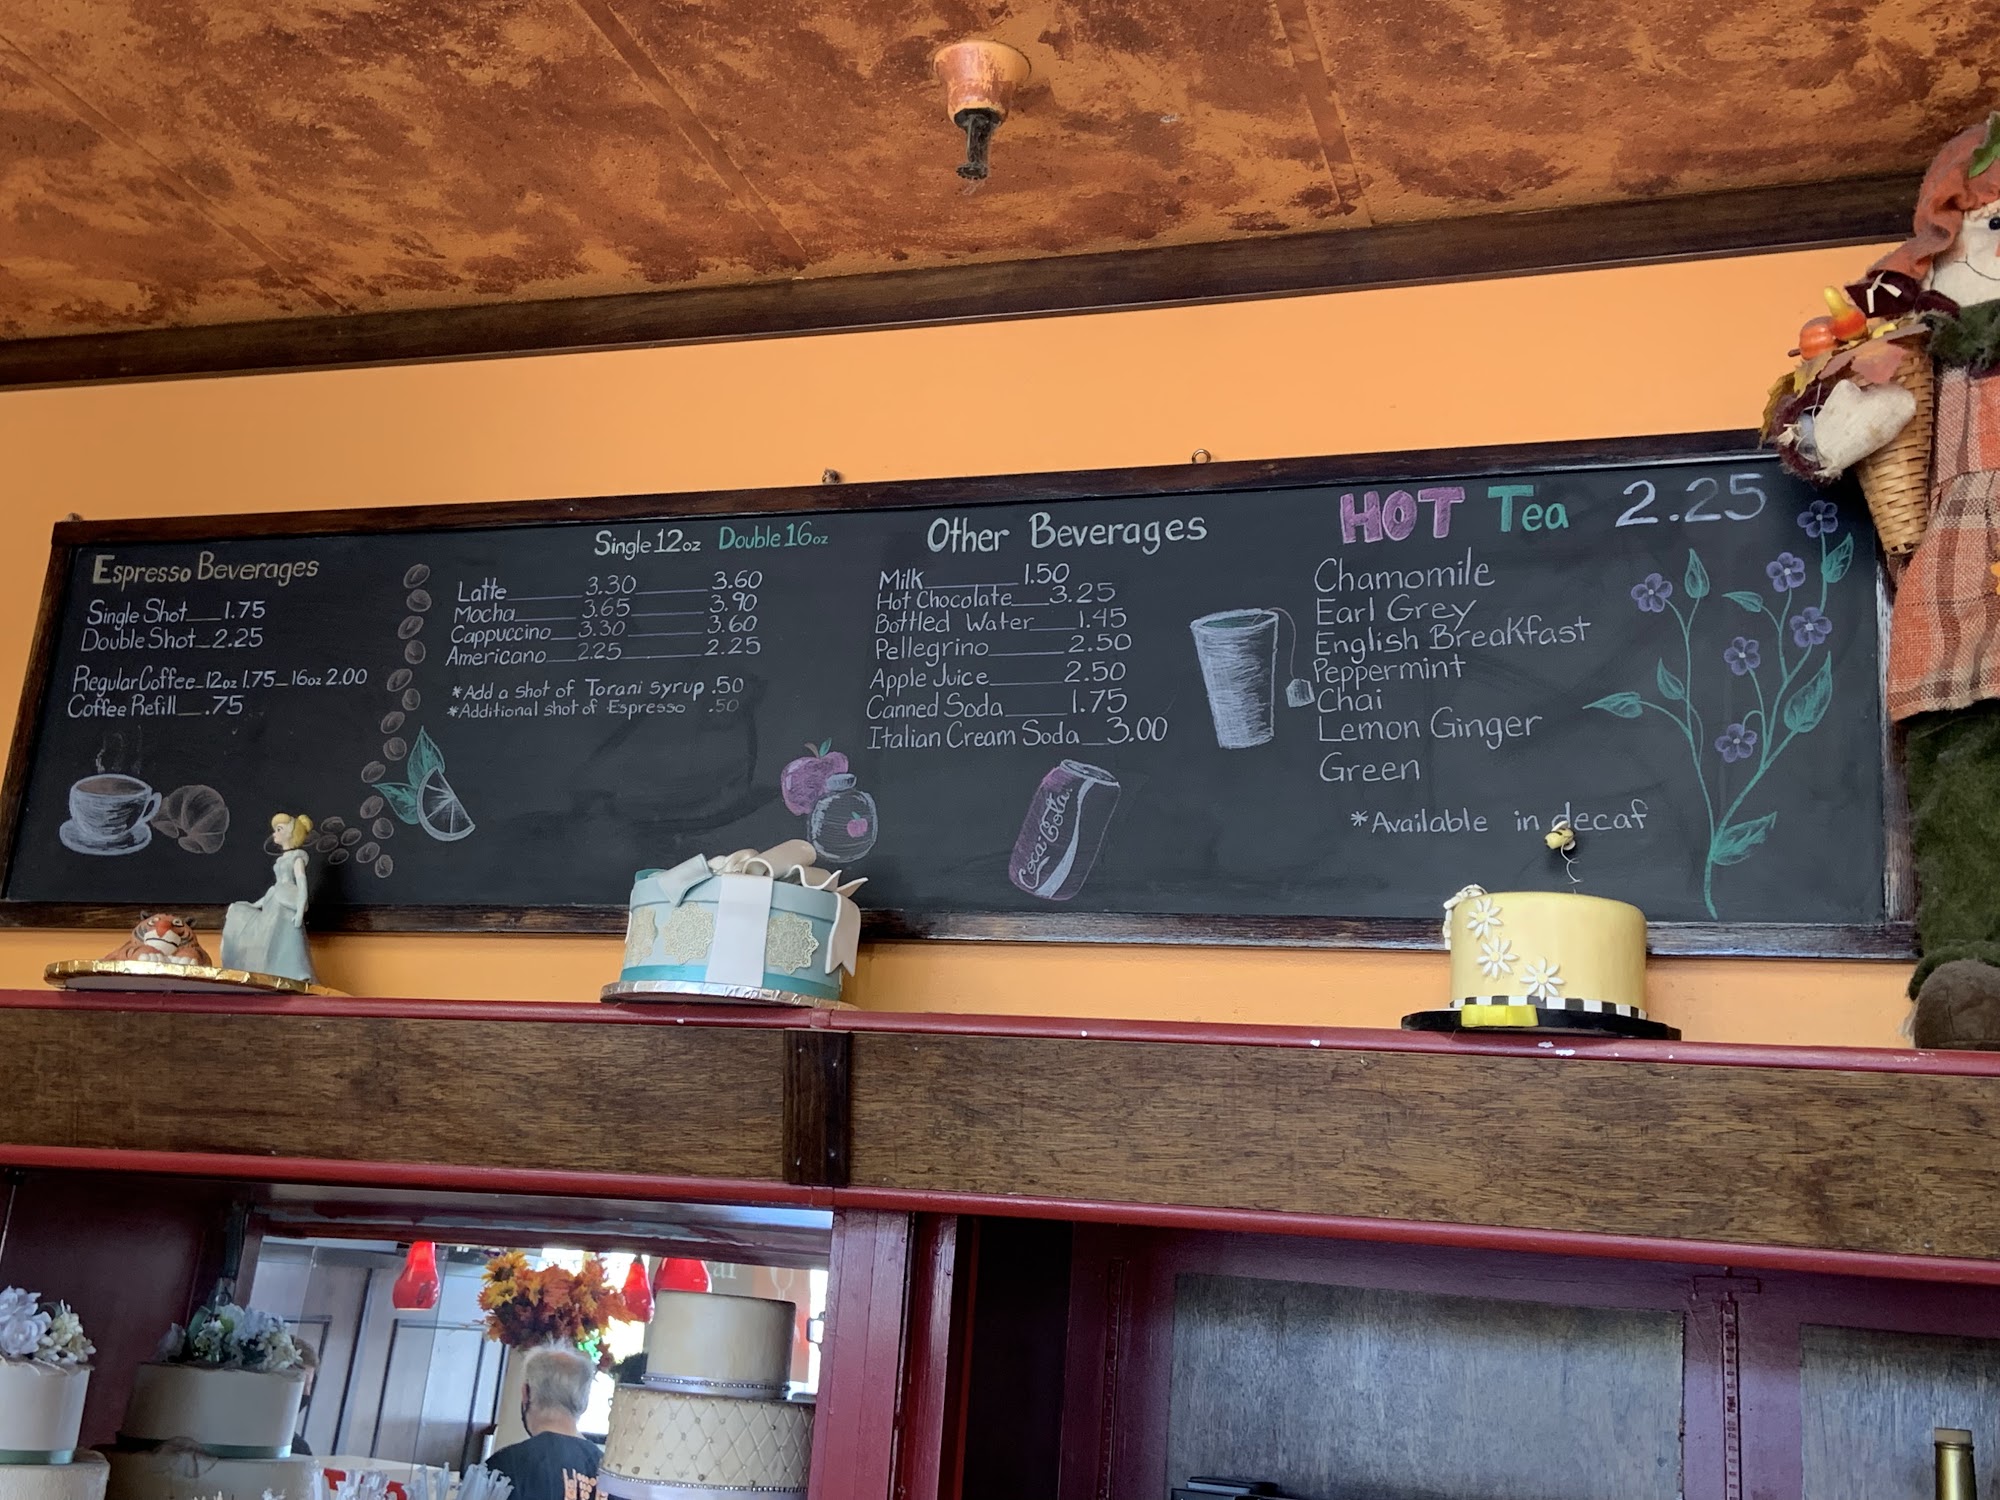 Espresso Beverages
Single Shot___1.75
Double Shot_2.25
Regular Coffee_12oz 1.75_16oz 2.00
Coffee Refill___.75
Single 12oz Double 16oz
Latte_______3.30_______3.60
Mocha_______3.65_______3.90
Cappuccino___3.30_______3.60
Americano___2.25_______2.25
*Add a shot of Torani syrup .50
*Additional shot of Espresso .50
Other Beverages
Milk_________1.50
Hot Chocolate___3.25
Bottled Water____1.45
Pellegrino_______2.50
Apple Juice_______2.50
Canned Soda_____1.75
Italian Cream Soda__3.00
Coca Cola
HOT Tea 2.25
Chamomile
Earl Grey
English Breakfast
Peppermint
Chai
Lemon Ginger
Green
*Available in decaf